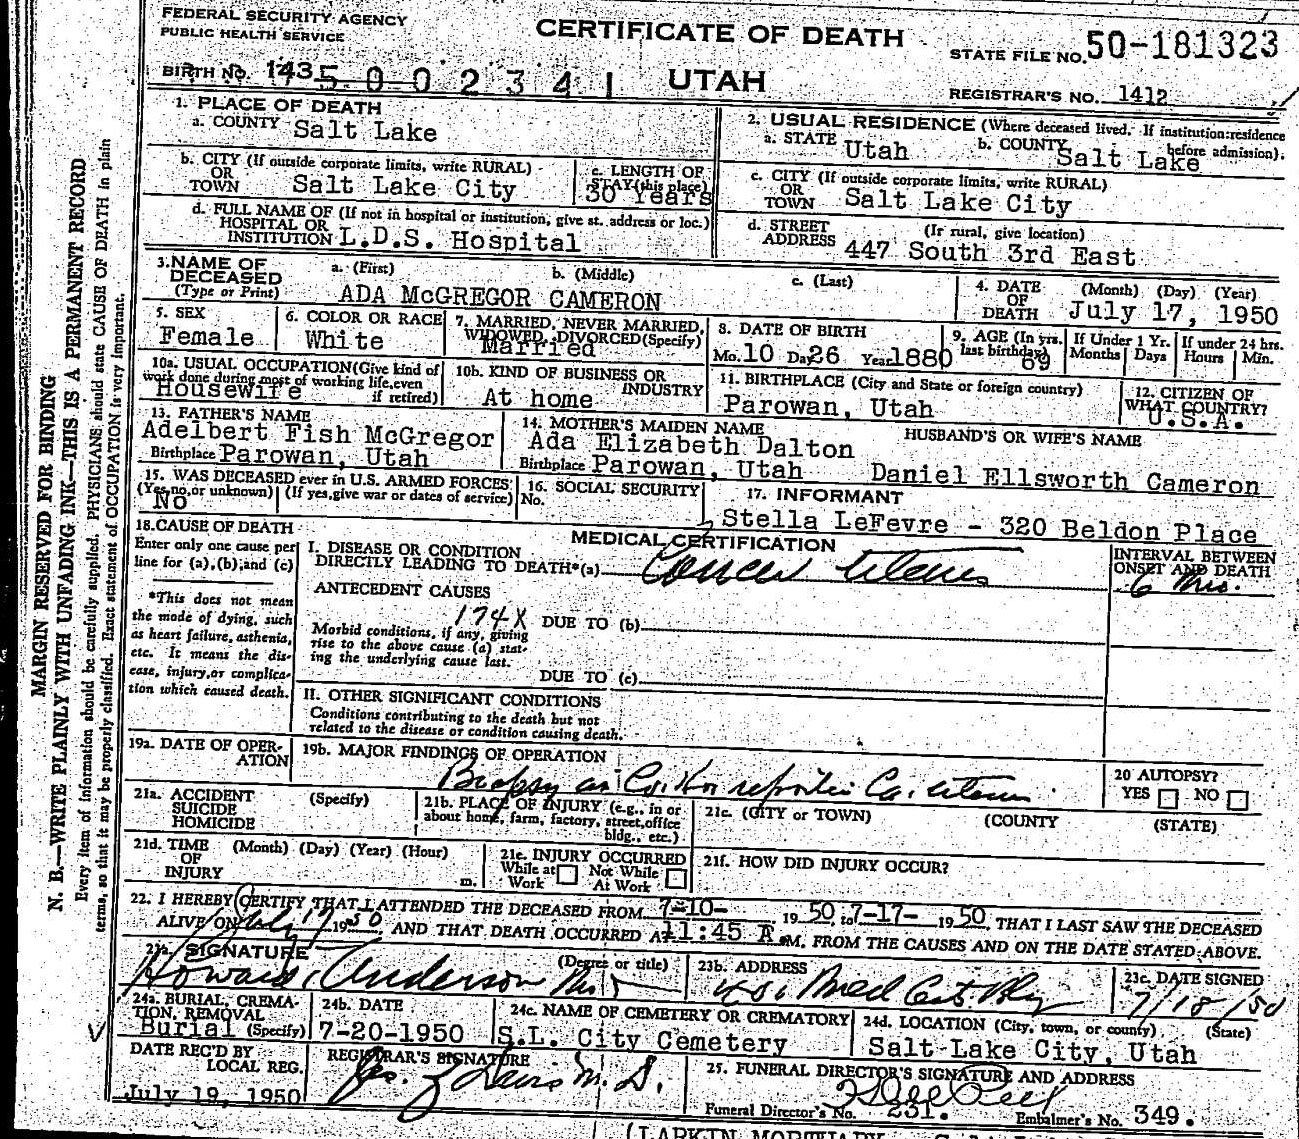 FEDERAL SECURITY AGENCY
PUBLIC HEALTH SERVICE
CERTIFICATE OF DEATH
STATE FILE NO. 50-181323
BIRTH NO. 143 5002341
UTAH
REGISTRAR'S NO. 1412
MARGIN RESERVED FOR BINDING
N. B.—WRITE PLAINLY WITH UNFADING INK—THIS IS A PERMANENT RECORD
Every item of information should be carefully supplied. PHYSICIANS should state CAUSE OF DEATH in plain
terms, so that it may be properly classified. Exact statement of OCCUPATION is very important.
1. PLACE OF DEATH
a. COUNTY Salt Lake
2. USUAL RESIDENCE (Where deceased lived. If institution: residence
before admission).
a. STATE Utah b. COUNTY Salt Lake
b. CITY (If outside corporate limits, write RURAL)
OR
TOWN Salt Lake City
c. LENGTH OF
STAY (this place)
30 Years
c. CITY (If outside corporate limits, write RURAL)
OR
TOWN Salt Lake City
d. FULL NAME OF (If not in hospital or institution, give st. address or loc.)
HOSPITAL OR
INSTITUTION L.D.S. Hospital
d. STREET (If rural, give location)
ADDRESS 447 South 3rd East
3. NAME OF
DECEASED
(Type or Print)
a. (First) b. (Middle) c. (Last)
ADA McGREGOR CAMERON
4. DATE
OF
DEATH
(Month) (Day) (Year)
July 17, 1950
5. SEX
Female
6. COLOR OR RACE
White
7. MARRIED, NEVER MARRIED,
WIDOWED, DIVORCED (Specify)
Married
8. DATE OF BIRTH
Mo. 10 Day 26 Year 1880
9. AGE (In yrs.
last birthday)
69
If Under 1 Yr.
Months Days
If under 24 hrs.
Hours Min.
10a. USUAL OCCUPATION (Give kind of
work done during most of working life, even
if retired)
Housewife
10b. KIND OF BUSINESS OR
INDUSTRY
At home
11. BIRTHPLACE (City and State or foreign country)
Parowan, Utah
12. CITIZEN OF
WHAT COUNTRY?
U.S.A.
13. FATHER'S NAME
Adelbert Fish McGregor
Birthplace Parowan, Utah
14. MOTHER'S MAIDEN NAME
Ada Elizabeth Dalton
Birthplace Parowan, Utah
HUSBAND'S OR WIFE'S NAME
Daniel Ellsworth Cameron
15. WAS DECEASED ever in U.S. ARMED FORCES?
(Yes, no, or unknown) (If yes, give war or dates of service)
No
16. SOCIAL SECURITY
No.
17. INFORMANT
Stella LeFevre - 320 Beldon Place
18. CAUSE OF DEATH
Enter only one cause per
line for (a), (b), and (c)
*This does not mean
the mode of dying, such
as heart failure, asthenia,
etc. It means the dis-
ease, injury, or complica-
tion which caused death.
MEDICAL CERTIFICATION
I. DISEASE OR CONDITION
DIRECTLY LEADING TO DEATH*(a) Cancer Uterus
INTERVAL BETWEEN
ONSET AND DEATH
6 Mos.
ANTECEDENT CAUSES
174X DUE TO (b)
Morbid conditions, if any, giving
rise to the above cause (a) stat-
ing the underlying cause last.
DUE TO (c)
II. OTHER SIGNIFICANT CONDITIONS
Conditions contributing to the death but not
related to the disease or condition causing death.
19a. DATE OF OPER-
ATION
19b. MAJOR FINDINGS OF OPERATION
Biopsy Ca. uterus
20 AUTOPSY?
YES NO
21a. ACCIDENT (Specify)
SUICIDE
HOMICIDE
21b. PLACE OF INJURY (e.g., in or
about home, farm, factory, street, office
bldg., etc.)
21c. (CITY or TOWN) (COUNTY (STATE)
21d. TIME (Month) (Day) (Year) (Hour)
OF
INJURY m.
21e. INJURY OCCURRED
While at Not While
Work At Work
21f. HOW DID INJURY OCCUR?
22. I HEREBY CERTIFY THAT I ATTENDED THE DECEASED FROM 7-10- 1950, to 7-17- 1950, THAT I LAST SAW THE DECEASED
ALIVE ON July 17 1950 AND THAT DEATH OCCURRED AT 11:45 A.M. FROM THE CAUSES AND ON THE DATE STATED ABOVE.
23a. SIGNATURE (Degree or title)
Howard Anderson
23b. ADDRESS
23c. DATE SIGNED
7/18/50
24a. BURIAL, CREMA-
TION, REMOVAL
Burial (Specify)
24b. DATE
7-20-1950
24c. NAME OF CEMETERY OR CREMATORY
S.L. City Cemetery
24d. LOCATION (City, town, or county) (State)
Salt Lake City, Utah
DATE REC'D BY
LOCAL REG.
July 19, 1950
REGISTRAR'S SIGNATURE
M. D.
25. FUNERAL DIRECTOR'S SIGNATURE AND ADDRESS
Funeral Director's No. 231. Embalmer's No. 349.
(LARKIN MORTUARY